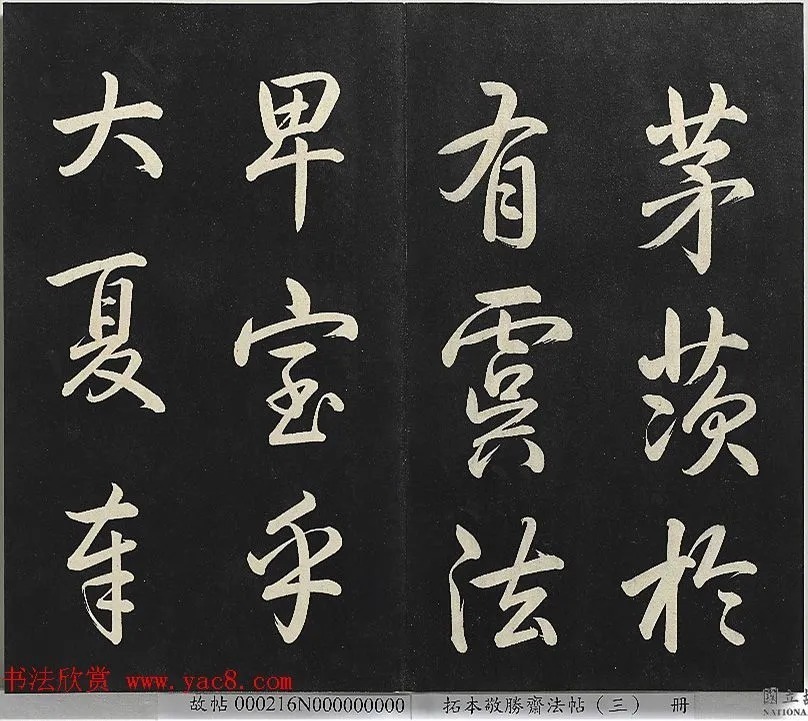 茅茨於
有虞法
卑室乎
大夏奉
书法欣赏 www.yac8.com
故帖000216N000000000
拓本敬勝齋法帖(三) 冊
國立
NATIONA